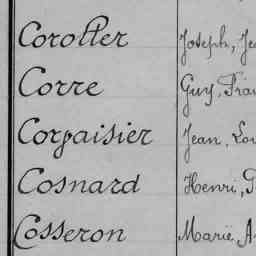 Coroller Joseph, Je
Corre Guy, Fran
Corpaisier Jean, Lou
Cosnard Henri,
Cosseron Marie, A